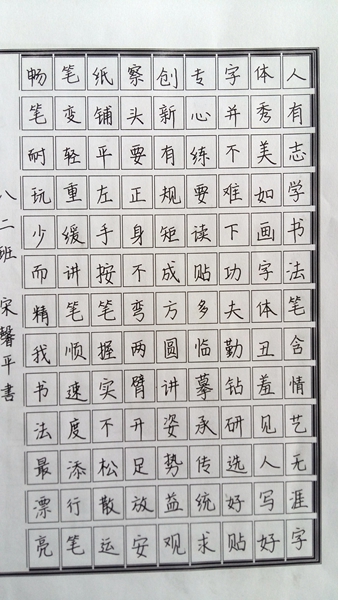 人有志学书法笔含情艺无涯字
体秀美如画字体丑羞见人写好
字并不难下功夫勤钻研选好贴
专心练要读贴多临摹承传统求
创新有规矩成方圆讲姿势益观
察头要正身不弯两臂开足放安
纸铺平左手按笔握实不松散运
笔变轻重缓讲笔顺速度添行笔
畅笔耐玩少而精我书法最漂亮
八二班 宋馨平書